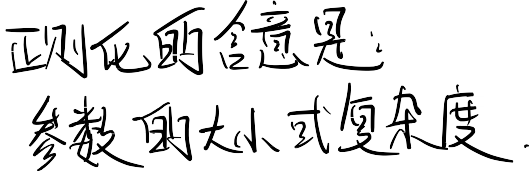 正则化的含意是:
参数的大小或复杂度.